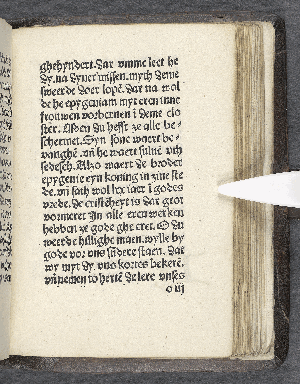 ghehyndert. dar vmme leet he
dy, na dyner missen, myth deme
sweerde doer lopē. dat na wol
de he epygeniam myt eren inne
frouwen vorbernen ī deme clo
ster. Mē du hefft ze alle be-
schermet. Syn sone waert be-
vanghē. vñ he waert sulue vth
sedesch. Alzo waert de broder
epygenie eyn konīg in zine ste
de. vñ sath wol lxx iaer ī godes
vrede. de cristēheyt is dar grot
vormeret In alle eren werken
hebben ze gode ghe eret. O du
weerde hillighe man. wylle by
gode vor vns sūdere staen. dat
wy myt dy. vns kortes bekerē.
vñ nemen to hertē de lere vnses
o iij